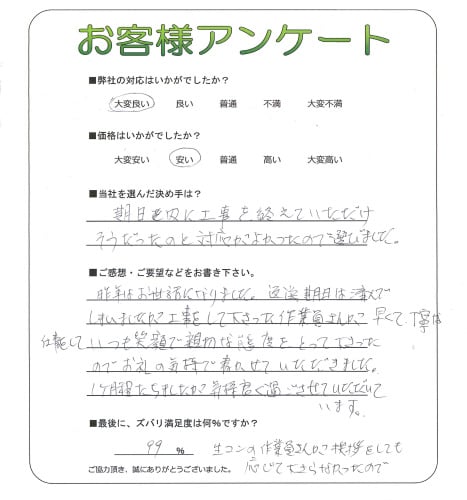 お客様アンケート
■弊社の対応はいかがでしたか？
大変良い 良い 普通 不満 大変不満
■価格はいかがでしたか？
大変安い 安い 普通 高い 大変高い
■当社を選んだ決め手は？
期日以内に工事を終えていただけ
そうだったのと対応がよかったので選びました。
■ご感想・ご要望などをお書き下さい。
昨年はお世話になりました。返送期日は済んで
しまいましたが工事をして下さった作業員さんが、早くて丁寧な
仕事していつも笑顔で親切な態度をとって下さった
のでお礼の気持で書かせていただきました。
1ヶ月程たちましたが気持良く過ごさせていただいて
います。
■最後に、ズバリ満足度は何％ですか？
99 % 生コンの作業員さんが挨拶をしても
ご協力頂き、誠にありがとうございました。 応じて下さらなかったので